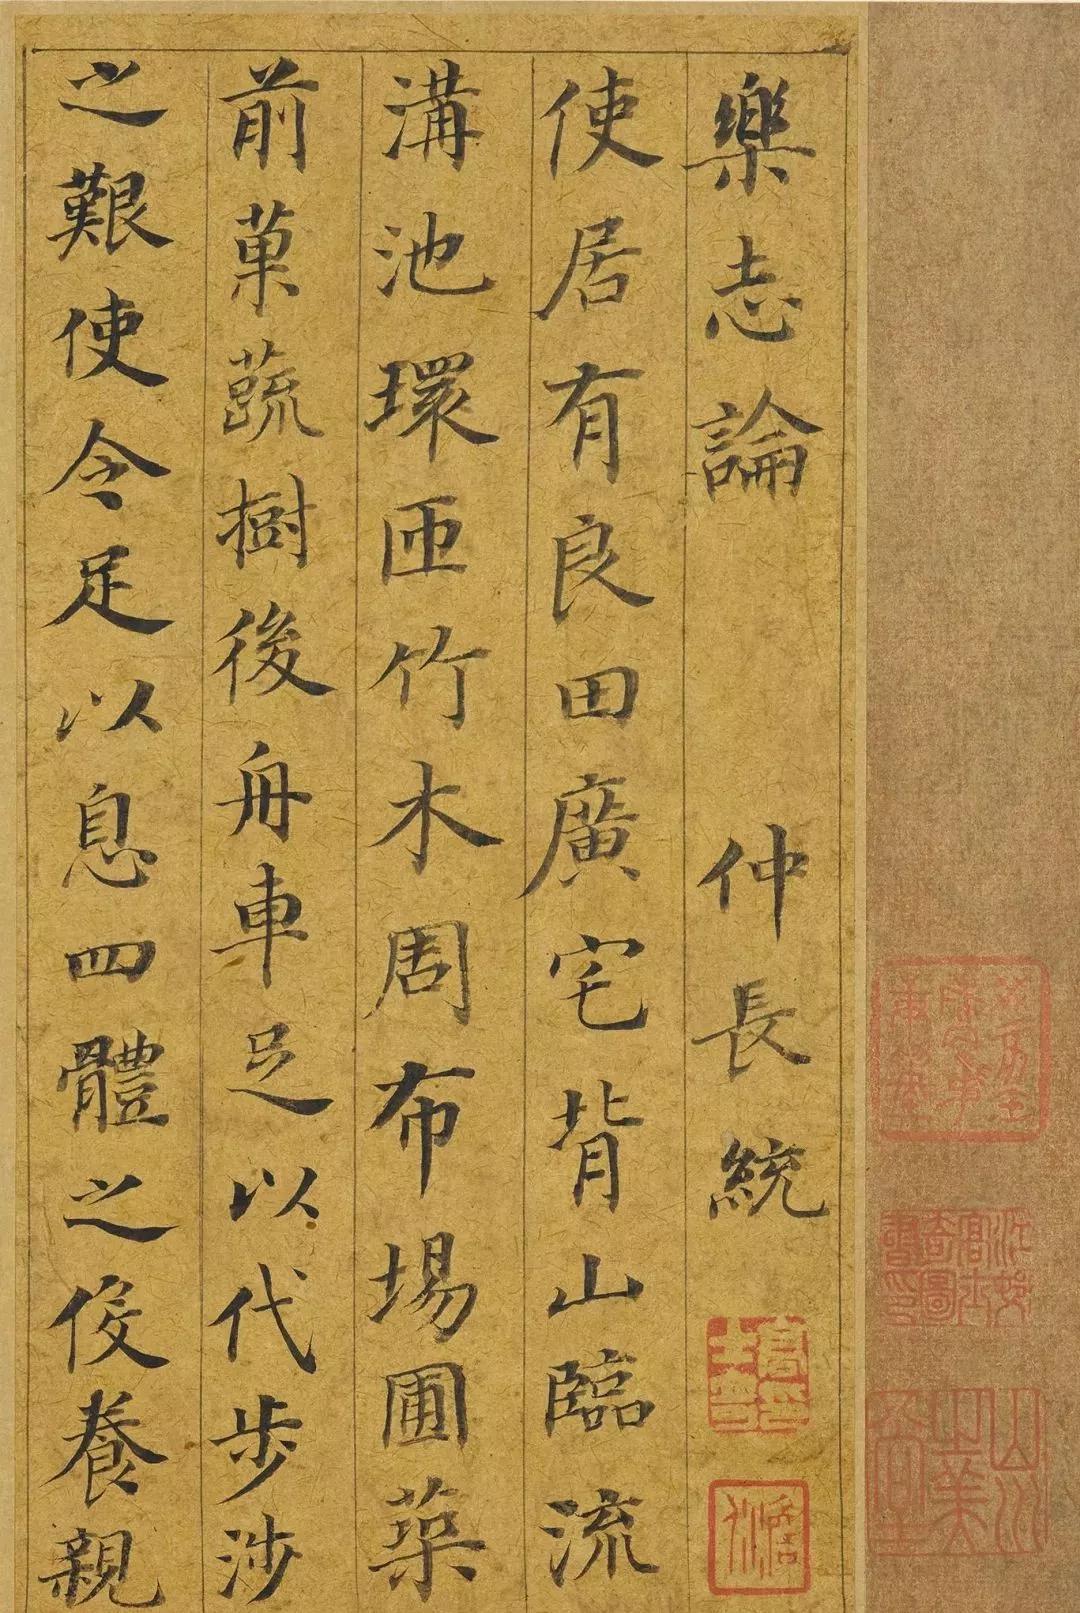 樂志論　仲長統
使居有良田廣宅背山臨流
溝池環匝竹木周布場圃築
前菓蔬樹後舟車足以代步涉
之艱使令足以息四體之伇養親